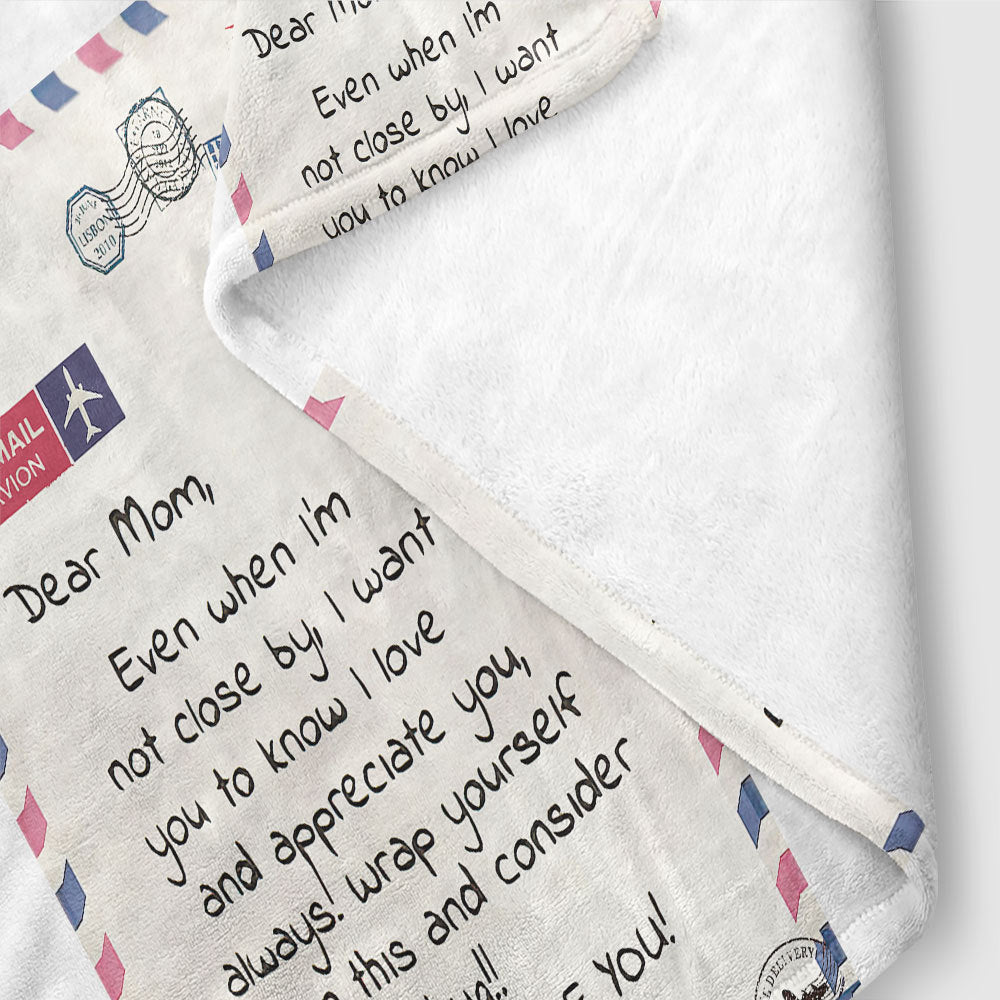 Dear Mom,
Even when I'm
not close by, I want
you to know I love
LISBON
2010
MAIL
AVION
Dear Mom,
Even when I'm
not close by, I want
you to know I love
and appreciate you,
always. wrap yourself
this and consider
YOU!
DELIVERY